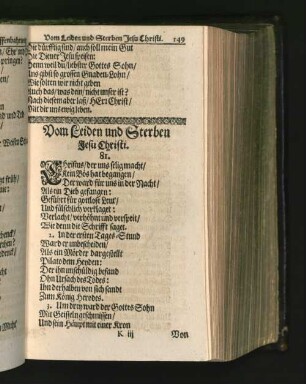 Vom Leiden und Sterben Jesu Christi. 149
Die dürfftig sind/ auch soll mein Gut
Die Diener Jesu speisen:
Denn weil du/ liebster Gottes Sohn/
Uns gibst so grossen Gnaden-Lohn/
Wie solten wir nicht geben
Auch das/ was dein/ nicht unser ist?
Nach diesem aber laß/ HErr Christ/
Mit dir uns ewig leben.
Vom Leiden und Sterben
Jesu Christi.
81.
Christus/ der uns selig macht/
Kein Böß hat begangen/
Der ward für uns in der Nacht/
Als ein Dieb gefangen:
Geführt für gottlose Leut/
Und fälschlich verklaget:
Verlacht/ verhöhnt und verspeyt/
Wie denn die Schrifft saget.
2. In der ersten Tages-Stund
Ward er unbescheiden/
Als ein Mörder dargestellt
Pilato dem Heyden:
Der ihn unschüldig befand
Ohn Ursach des Todes:
Ihn derhalben von sich sandt
Zum König Herodes.
3. Um drey ward der Gottes Sohn
Mit Geisseln geschmissen/
Und sein Häupt mit einer Kron
K iij Von